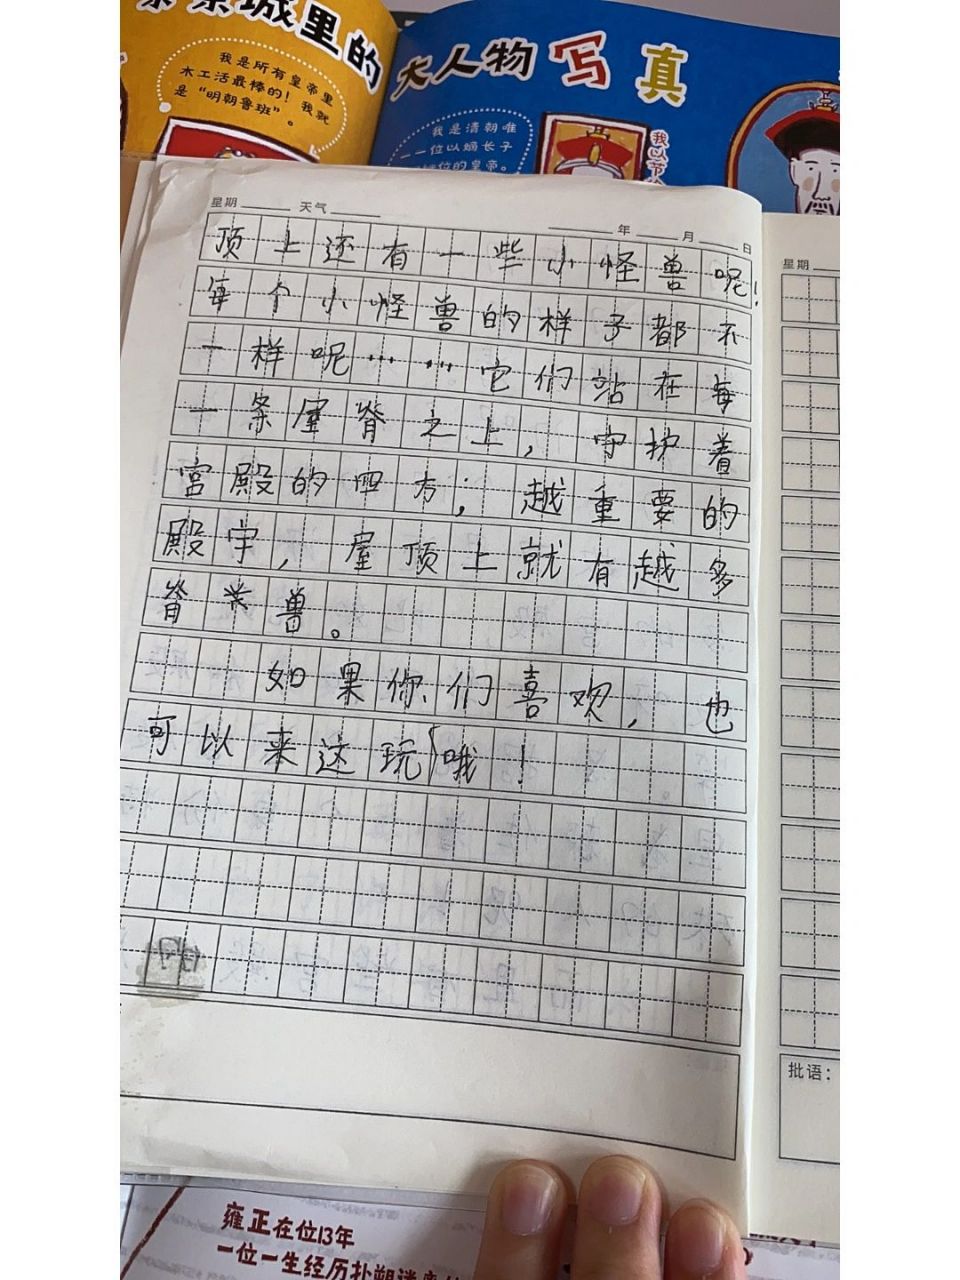 城里的
大人物写真
我是所有皇帝里
木工活最棒的！我就
是“明朝鲁班”。
我是清朝唯
一一位以嫡长子
位的皇帝。
我以节
星期 天气
年 月 日
顶上还有一些小怪兽呢！
每个小怪兽的样子都不
一样呢……它们站在每
一条屋脊之上，守护着
宫殿的四方；越重要的
殿宇，屋顶上就有越多
脊兽。
如果你们喜欢，也
可以来这玩哦！
星期
批语：
雍正在位13年
一位一生经历扑朔迷